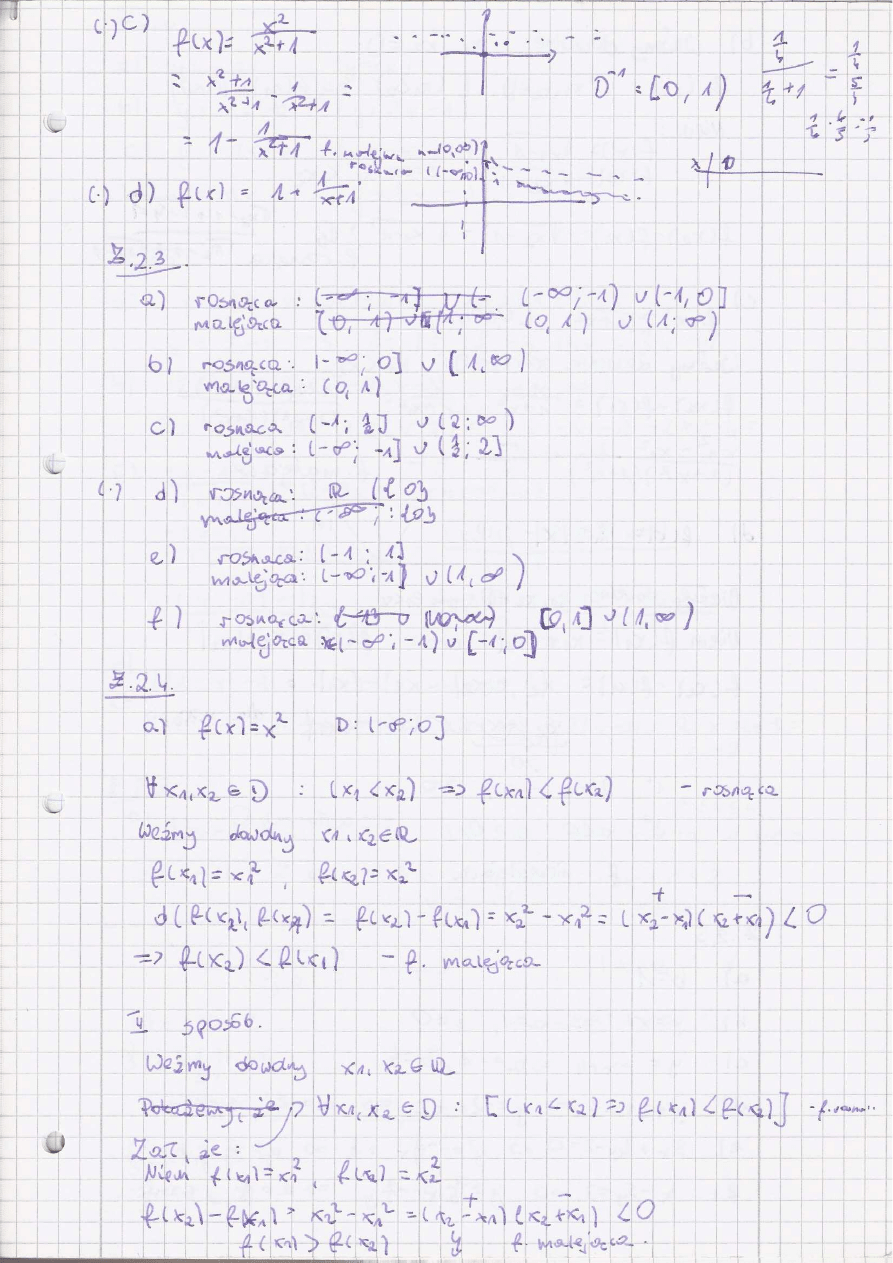 (·) c) f(x) = x²/(x²+1)
= (x²+1)/(x²+1) - 1/(x²+1) =
D⁻¹ = [0, 1)
= 1 - 1/(x²+1)
x | 0
(·) d) f(x) = 1 + 1/(x+1)
Z.2.3.
a) rosnąca : (-∞; -1) ∪ (-1, 0]
malejąca (0, 1) ∪ (1; ∞)
b) rosnąca: (-∞; 0] ∪ [1, ∞)
malejąca: (0, 1)
c) rosnąca (-1; 1/2] ∪ (2; ∞)
malejąca: (-∞; -1] ∪ (1/2; 2]
(·) d) rosnąca: ℝ \ {0}
malejąca: (-∞; : {0}
e) rosnąca: (-1; 1]
malejąca: (-∞; -1] ∪ (1, ∞)
f) rosnąca: [0, 1] ∪ (1, ∞)
malejąca (-∞; -1) ∪ [-1; 0]
Z.2.4.
a) f(x) = x² D: (-∞; 0]
∀ x1, x2 ∈ D : (x1 < x2) => f(x1) < f(x2) - rosnąca
Weźmy dowolny x1, x2 ∈ ℝ
f(x1) = x1², f(x2) = x2²
+ -
d(f(x2), f(x1)) = f(x2) - f(x1) = x2² - x1² = (x2 - x1)(x2 + x1) < 0
=> f(x2) < f(x1) - f. malejąca
II sposób.
Weźmy dowolny x1, x2 ∈ ℝ
Pokażemy, że ∀ x1, x2 ∈ D : [(x1 < x2) => f(x1) < f(x2)]
Zał, że :
Niem f(x1) = x1², f(x2) = x2²
+ -
f(x2) - f(x1) = x2² - x1² = (x2 - x1)(x2 + x1) < 0
f(x1) > f(x2) f. malejąca.